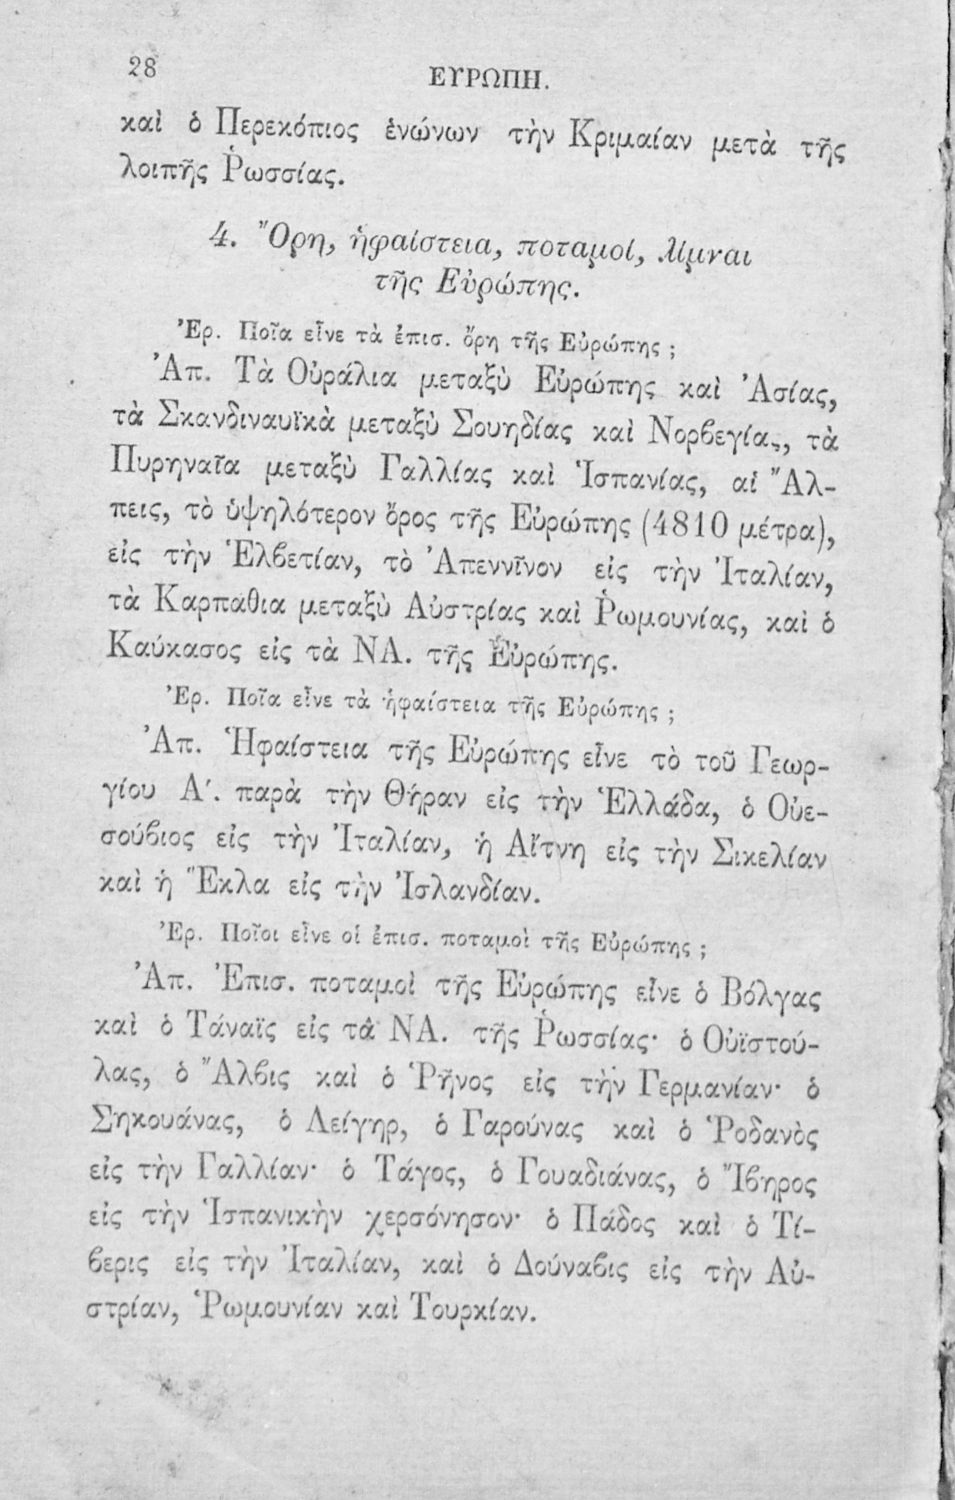 28
ΕΥΡΩΠΗ.
καὶ ὁ Περεκόπιος ἑνώνων τὴν Κριμαίαν μετὰ τῆς
λοιπῆς Ῥωσσίας.
4. Ὄρη, ἡφαίστεια, ποταμοί, λίμναι
τῆς Εὐρώπης.
Ἐρ. Ποῖα εἶνε τὰ ἐπισ. ὄρη τῆς Εὐρώπης ;
Ἀπ. Τὰ Οὐράλια μεταξὺ Εὐρώπης καὶ Ἀσίας,
τὰ Σκανδιναυϊκὰ μεταξὺ Σουηδίας καὶ Νορβεγίας, τὰ
Πυρηναῖα μεταξὺ Γαλλίας καὶ Ἱσπανίας, αἱ Ἄλ-
πεις, τὸ ὑψηλότερον ὄρος τῆς Εὐρώπης (4810 μέτρα),
εἰς τὴν Ἑλβετίαν, τὸ Ἀπεννῖνον εἰς τὴν Ἰταλίαν,
τὰ Καρπάθια μεταξὺ Αὐστρίας καὶ Ῥωμουνίας, καὶ ὁ
Καύκασος εἰς τὰ ΝΑ. τῆς Εὐρώπης.
Ἐρ. Ποῖα εἶνε τὰ ἡφαίστεια τῆς Εὐρώπης ;
Ἀπ. Ἡφαίστεια τῆς Εὐρώπης εἶνε τὸ τοῦ Γεωρ-
γίου Α΄. παρὰ τὴν Θήραν εἰς τὴν Ἑλλάδα, ὁ Οὐε-
σούβιος εἰς τὴν Ἰταλίαν, ἡ Αἴτνη εἰς τὴν Σικελίαν
καὶ ἡ Ἕκλα εἰς τὴν Ἰσλανδίαν.
Ἐρ. Ποῖοι εἶνε οἱ ἐπισ. ποταμοὶ τῆς Εὐρώπης ;
Ἀπ. Ἐπισ. ποταμοὶ τῆς Εὐρώπης εἶνε ὁ Βόλγας
καὶ ὁ Τάναϊς εἰς τὰ ΝΑ. τῆς Ῥωσσίας· ὁ Οὐϊστού-
λας, ὁ Ἄλβις καὶ ὁ Ῥῆνος εἰς τὴν Γερμανίαν· ὁ
Σηκουάνας, ὁ Λείγηρ, ὁ Γαρούνας καὶ ὁ Ῥοδανὸς
εἰς τὴν Γαλλίαν· ὁ Τάγος, ὁ Γουαδιάνας, ὁ Ἴβηρος
εἰς τὴν Ἱσπανικὴν χερσόνησον· ὁ Πάδος καὶ ὁ Τί-
βερις εἰς τὴν Ἰταλίαν, καὶ ὁ Δούναβις εἰς τὴν Αὐ-
στρίαν, Ῥωμουνίαν καὶ Τουρκίαν.